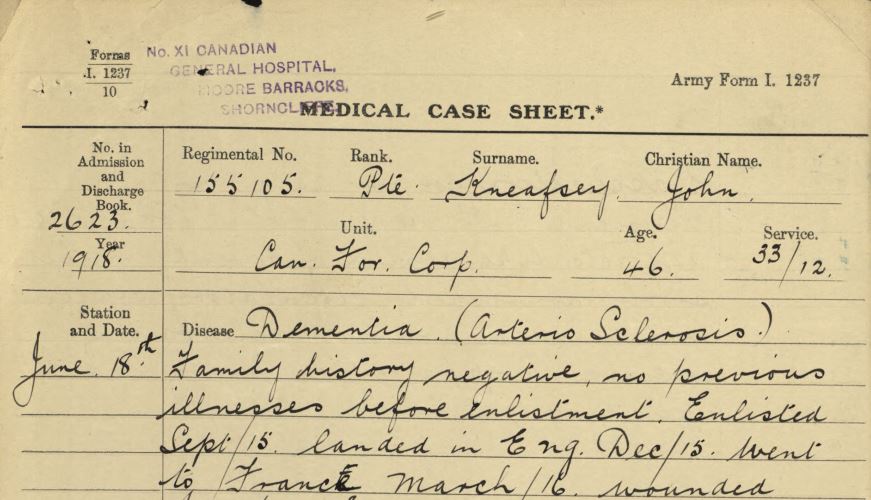 Forms
I. 1237
10
No. XI CANADIAN
GENERAL HOSPITAL,
MOORE BARRACKS,
SHORNCLIFFE.
Army Form I. 1237
MEDICAL CASE SHEET.*
No. in
Admission
and
Discharge
Book.
2623.
Year
1918.
Regimental No. Rank. Surname. Christian Name.
155105. Pte. Kneafsey John.
Unit. Age. Service.
Can. For. Corp. 46. 33/12.
Station
and Date.
Disease Dementia. (Arterio Sclerosis.)
June. 18th. Family history negative, no previous
illnesses before enlistment. Enlisted
Sept/15. landed in Eng. Dec/15. Went
to France March/16. wounded